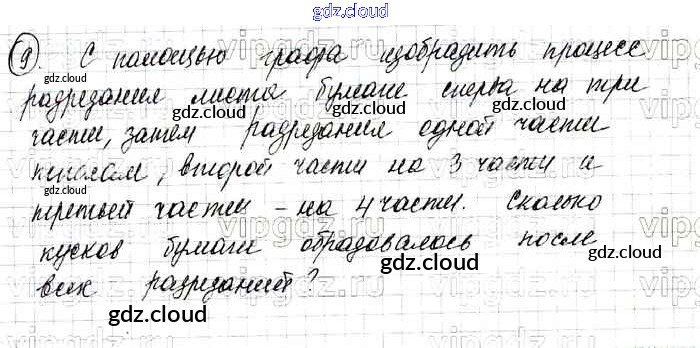 gdz.cloud
9. С помощью графа изобразить процесс
разрезания листа бумаги сперва на три
части, затем разрезания одной части
пополам, второй части на 3 части и
третьей части – на 4 части. Сколько
кусков бумаги образовалось после
всех разрезаний?